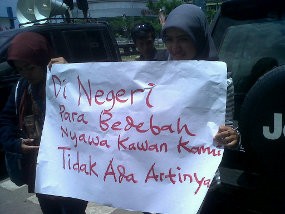 Di Negeri
Para Bedebah
Nyawa Kawan Kami
Tidak Ada Artinya